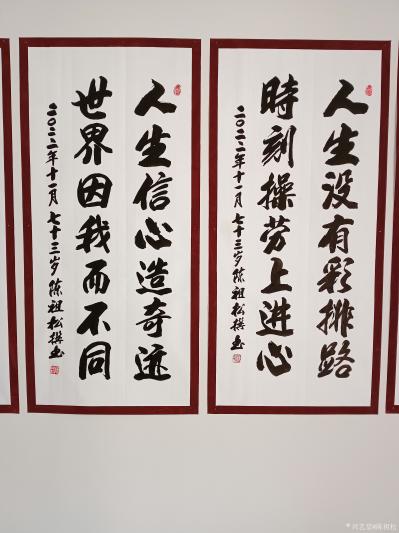 人生没有彩排路
時刻操劳上进心
二〇二二年十一月七十三岁陈祖松撰书
人生信心造奇迹
世界因我而不同
二〇二二年十一月七十三岁陈祖松撰书